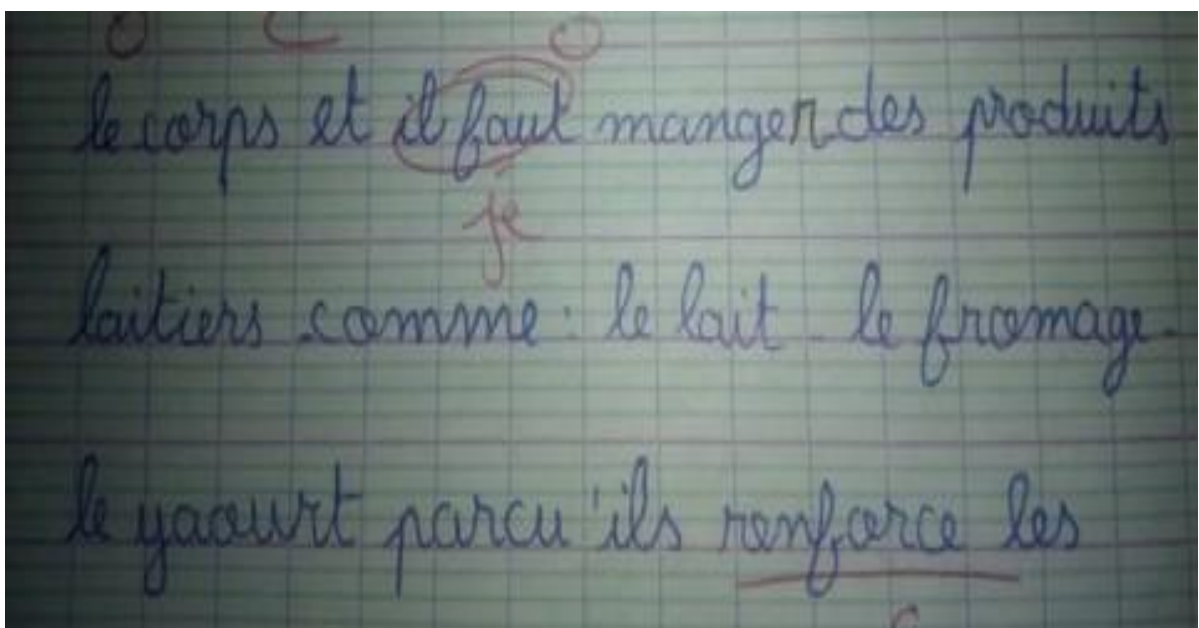 le corps et il faut manger des produits
je
laitiers comme : le lait - le fromage -
le yaourt parcu'ils renforce les